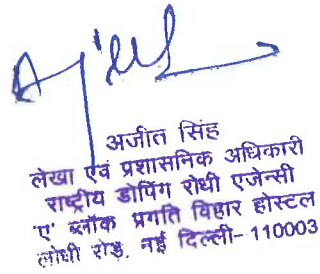 अजीत सिंह
लेखा एवं प्रशासनिक अधिकारी
राष्ट्रीय डोपिंग रोधी एजेन्सी
'ए' ब्लॉक प्रगति विहार होस्टल
लोधी रोड, नई दिल्ली-110003